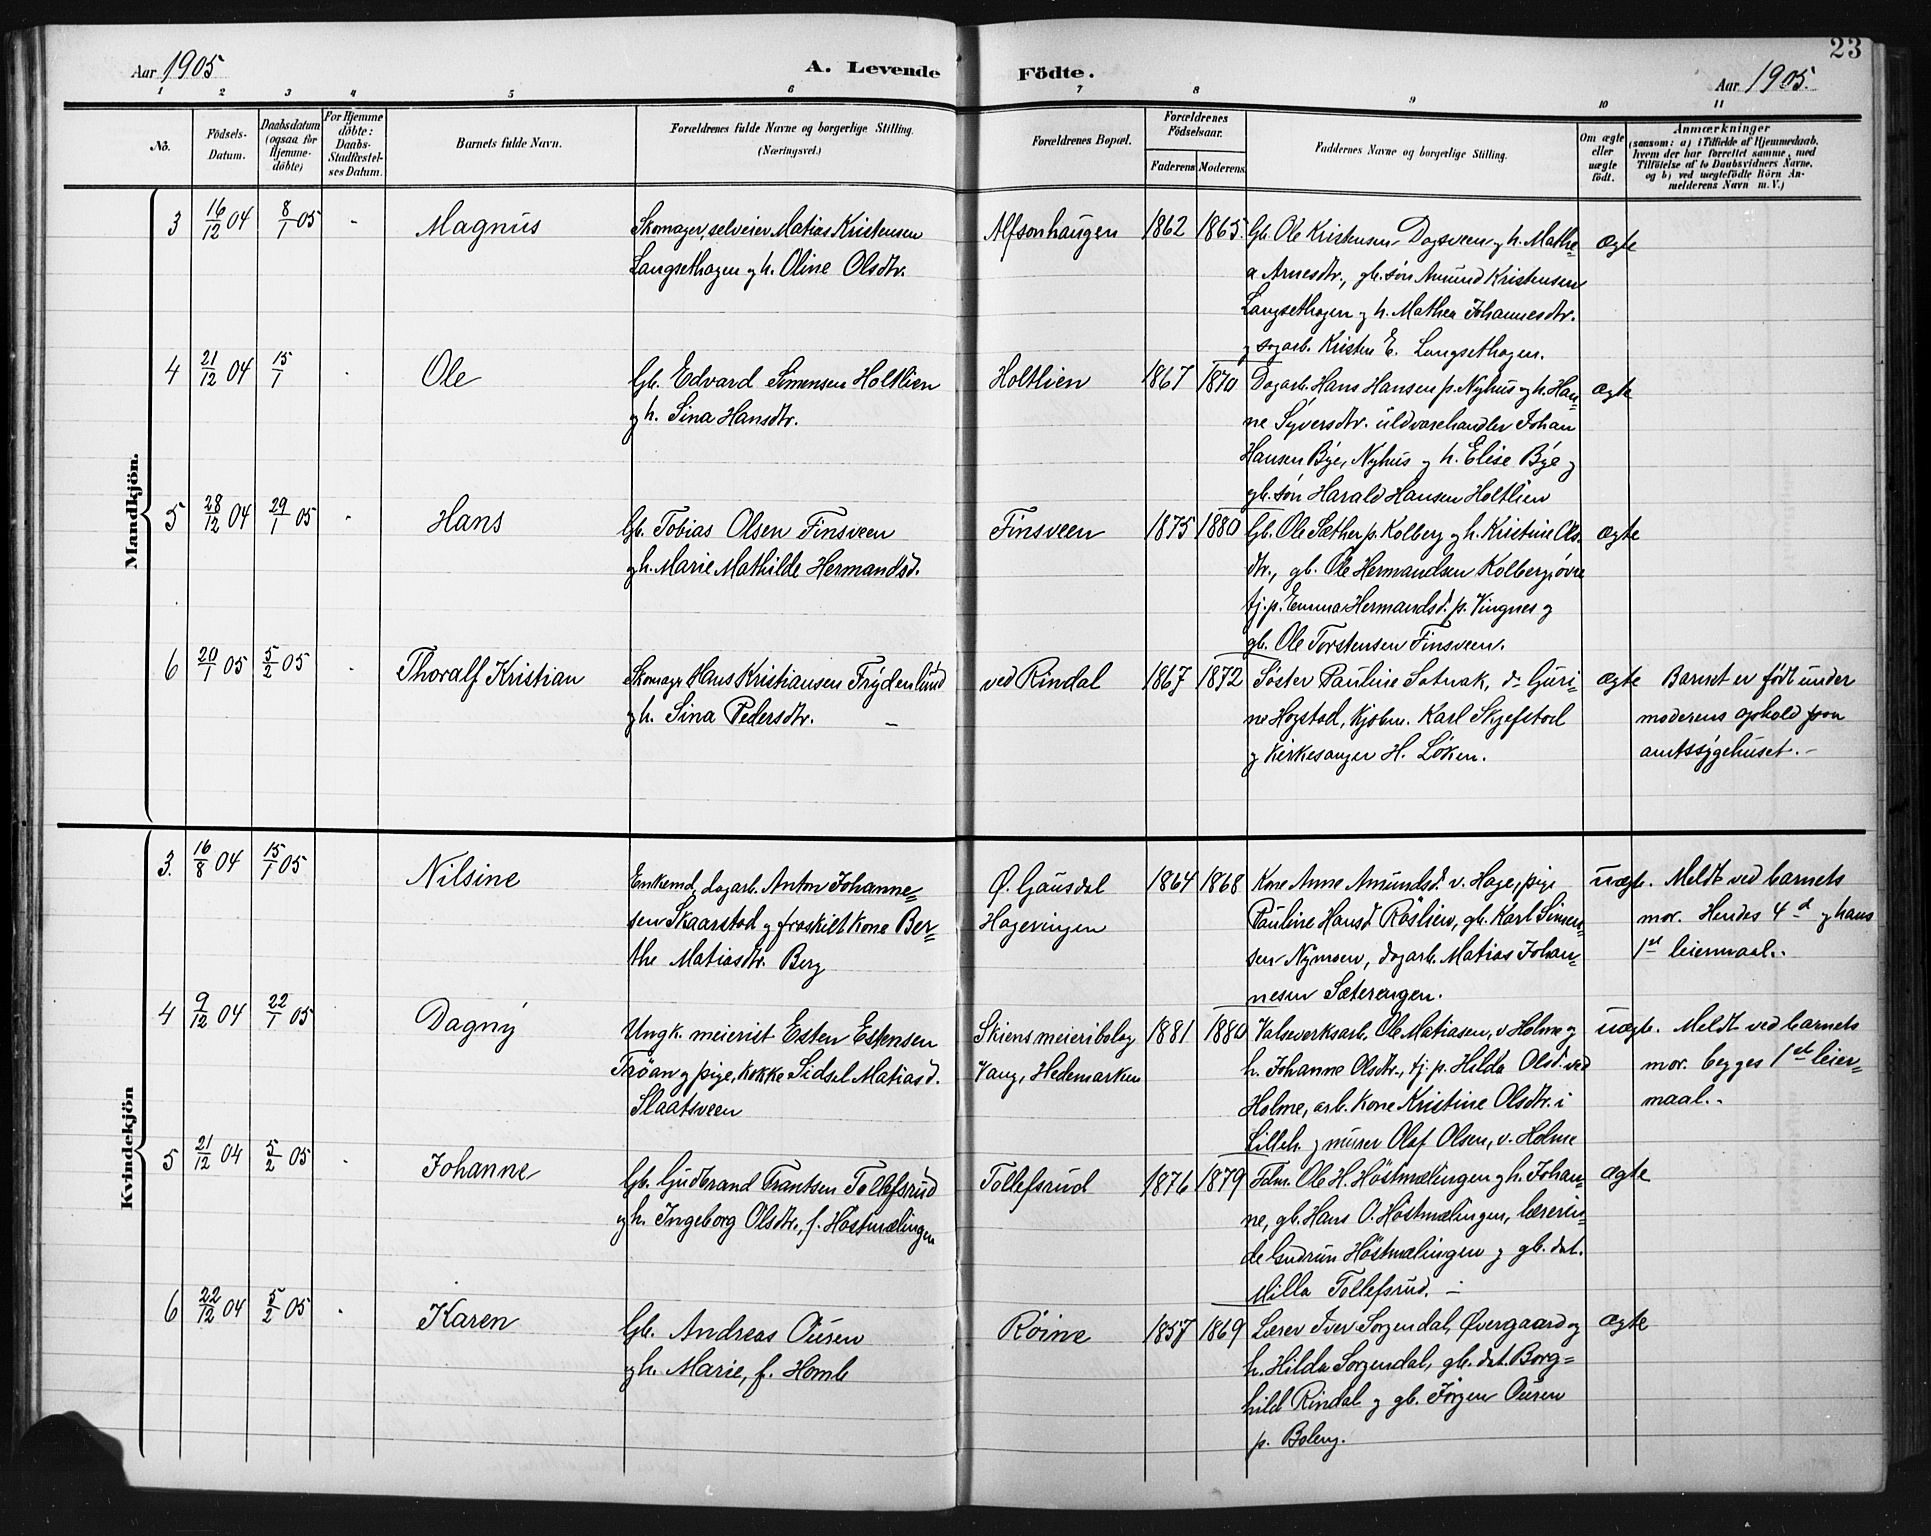 23
Aar 1905
A. Levende Födte.
Aar 1905.
1 2 3 4 5 6 7 8 9 10 11
No.
Födsels-
Datum.
Daabsdatum
(ogsaa for
Hjemme-
döbte)
For Hjemme
döbte:
Daabs-
Stadfæstel-
ses Datum.
Barnets fulde Navn.
Forældrenes fulde Navne og borgerlige Stilling.
(Næringsvei.)
Forældrenes Bopæl.
Forældrenes
Födselsaar.
Faderens Moderens
Faddernes Navne og borgerlige Stilling.
Om ægte
eller
uægte
födt.
Anmærkninger
(saasom: a) i Tilfælde af Hjemmedaab,
hvem der har forrettet samme, med
Tilföielse af to Daabsvidners Navne,
og b) ved uægtefödte Börn An-
melderens Navn m. V.)
Mandkjön.
3 16/12 04 8/1 05 - Magnus
Skomager, selveier Matias Kristensen
Langsethagen g h. Oline Olsdtr.
Alfsonhaugen 1862 1865.
Gb. Ole Kristensen Dagsveen g h. Mathe=
a Arnesdtr., gb. søn Amund Kristensen
Langsethagen g h. Mathea Johannesdtr.
g dagarb. Kristen E. Langsethagen.
ægte
4 21/12 04 15/1 . Ole
Gb. Edvard Simensen Holtlien
g h. Sina Hansdtr.
Holtlien 1867 1870
Dagarb. Hans Hansen p. Nyhus g h. Han=
ne Syversdtr. uldvarehandler Johan
Hansen Bye, Nyhus g h. Elise Bye g
gb. søn Harald Hansen Holtlien
ægte
5 28/12 04 29/1 05 - Hans
Gb. Tobias Olsen Finsveen
g h. Marie Mathilde Hermandsd.
Finsveen 1875 1880
Gb. Ole Sæther p. Kolberg g h. Kristine Ols
dtr., gb. Ole Hermandsen Kolberg øvre
tj. p. Emma Hermandsd. p. Vingnes g
gb. Ole Torstensen Finsveen.
ægte
6 20/1 05 5/2 05 - Thoralf Kristian
Skomagr Hans Kristiansen Frydenlund
g h. Sina Pedersdtr. —
ved Rindal 1867 1872
Søster Pauline Sotnak, do Guri=
ne Hogstad, kjøbm. Karl Skjefstad
g kirkesanger H. Løken.
ægte
Barnet er født under
moderens ophold paa
amtssygehuset. -
Kvindekjön
3. 16/8 04 15/1 05 Nilsine
Enkemd, dagarb. Anton Johanne=
sen Skaarstad g fraskilt kone Ber=
the Matiasdtr. Berg
Ø. Gausdal
Hageringen
1864 1868
Kone Anne Amundsd. v. Hage, pige
Pauline Hansd. Røslien, gb. Karl Simen=
sen Nymoen, dagarb. Matias Johan=
nesen Sæterengen.
uægte. Meldt ved barnets
mor. Hendes 4d g hans
1st leiermaal..
4 9/12 04 22/1 05 Dagny
Ungk. meierist Esten Estensen
Trøan g pige, kokke Sidsel Matiasd.
Slaatsveen
Skiens meieribolag
Vang, Hedemarken
1881 1880
Valseverksarb. Ole Matiasen, v. Holme g
h. Johanne Olsdtr., tj. p. Hilda Olsd. ved
Holme, arb. kone Kristine Olsdtr. i
Lilleh. g murer Olaf Olsen, v. Holme
uægte. Meldt ved barnets
mor. begges 1ste leier=
maal..
5 21/12 04 5/2 05 . Johanne
Gb. Gudbrand Frantsen Tollefsrud
g h. Ingeborg Olsdtr., f. Høstmælingen
Tollefsrud 1876 1879
Fdm. Ole H. Høstmælingen g h. Johan=
ne, gb. Hans O. Høstmælingen, lærerin=
de Gudrun Høstmælingen g gb. dat.
Milla Tollefsrud. —
ægte
6 22/12 04 5/2 05 . Karen
Gb. Andreas Ousen
g h. Marie, f. Homb
Røine 1857 1869
Lærer Iver Sorgendal, Øvergaard g
h. Hilda Sorgendal, gb. dat. Borg=
hild Rindal g gb. Jørgen Ousen
p. Boleng.
ægte